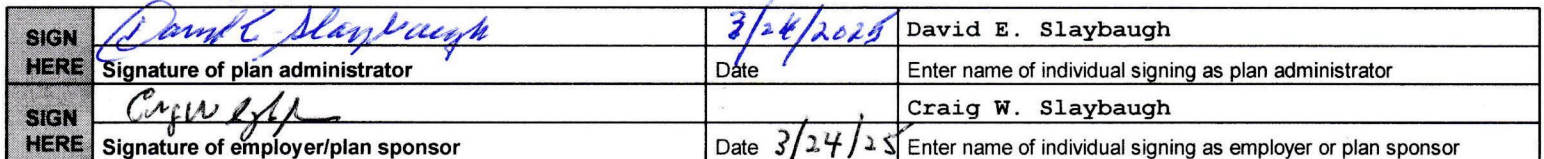 SIGN HERE David E. Slaybaugh
3/24/2025
Signature of plan administrator Date Enter name of individual signing as plan administrator
SIGN HERE Craig W. Slaybaugh
Signature of employer/plan sponsor Date 3/24/25 Enter name of individual signing as employer or plan sponsor